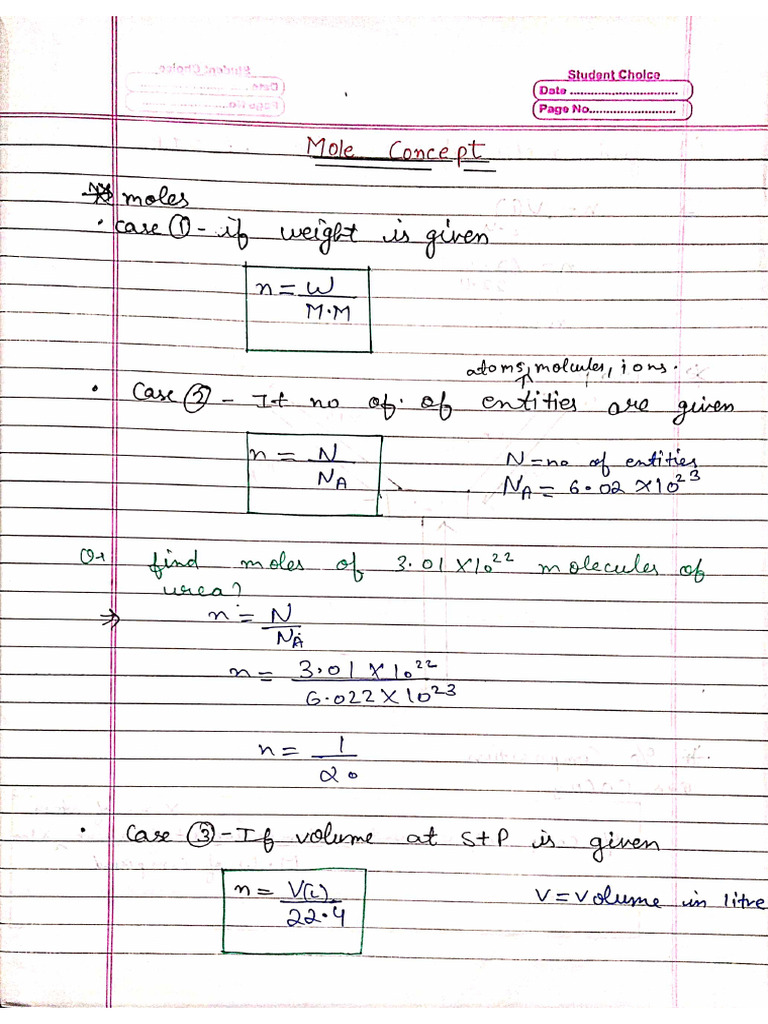 Student Choice
Date ..............................
Page No.........................
Mole Concept
moles
• Case ① - if weight is given
n = W
M·M
atoms, molecules, ions.
• Case ② - If no of. of entities are given
n = N
N_A
N = no of entities
N_A = 6.02 × 10²³
Q→ find moles of 3.01 × 10²² molecules of
urea?
⇒ n = N
N_A
n = 3.01 × 10²²
6.022 × 10²³
n = 1
20
• Case ③ - If volume at STP is given
n = V(L)
22.4
V = Volume in litre